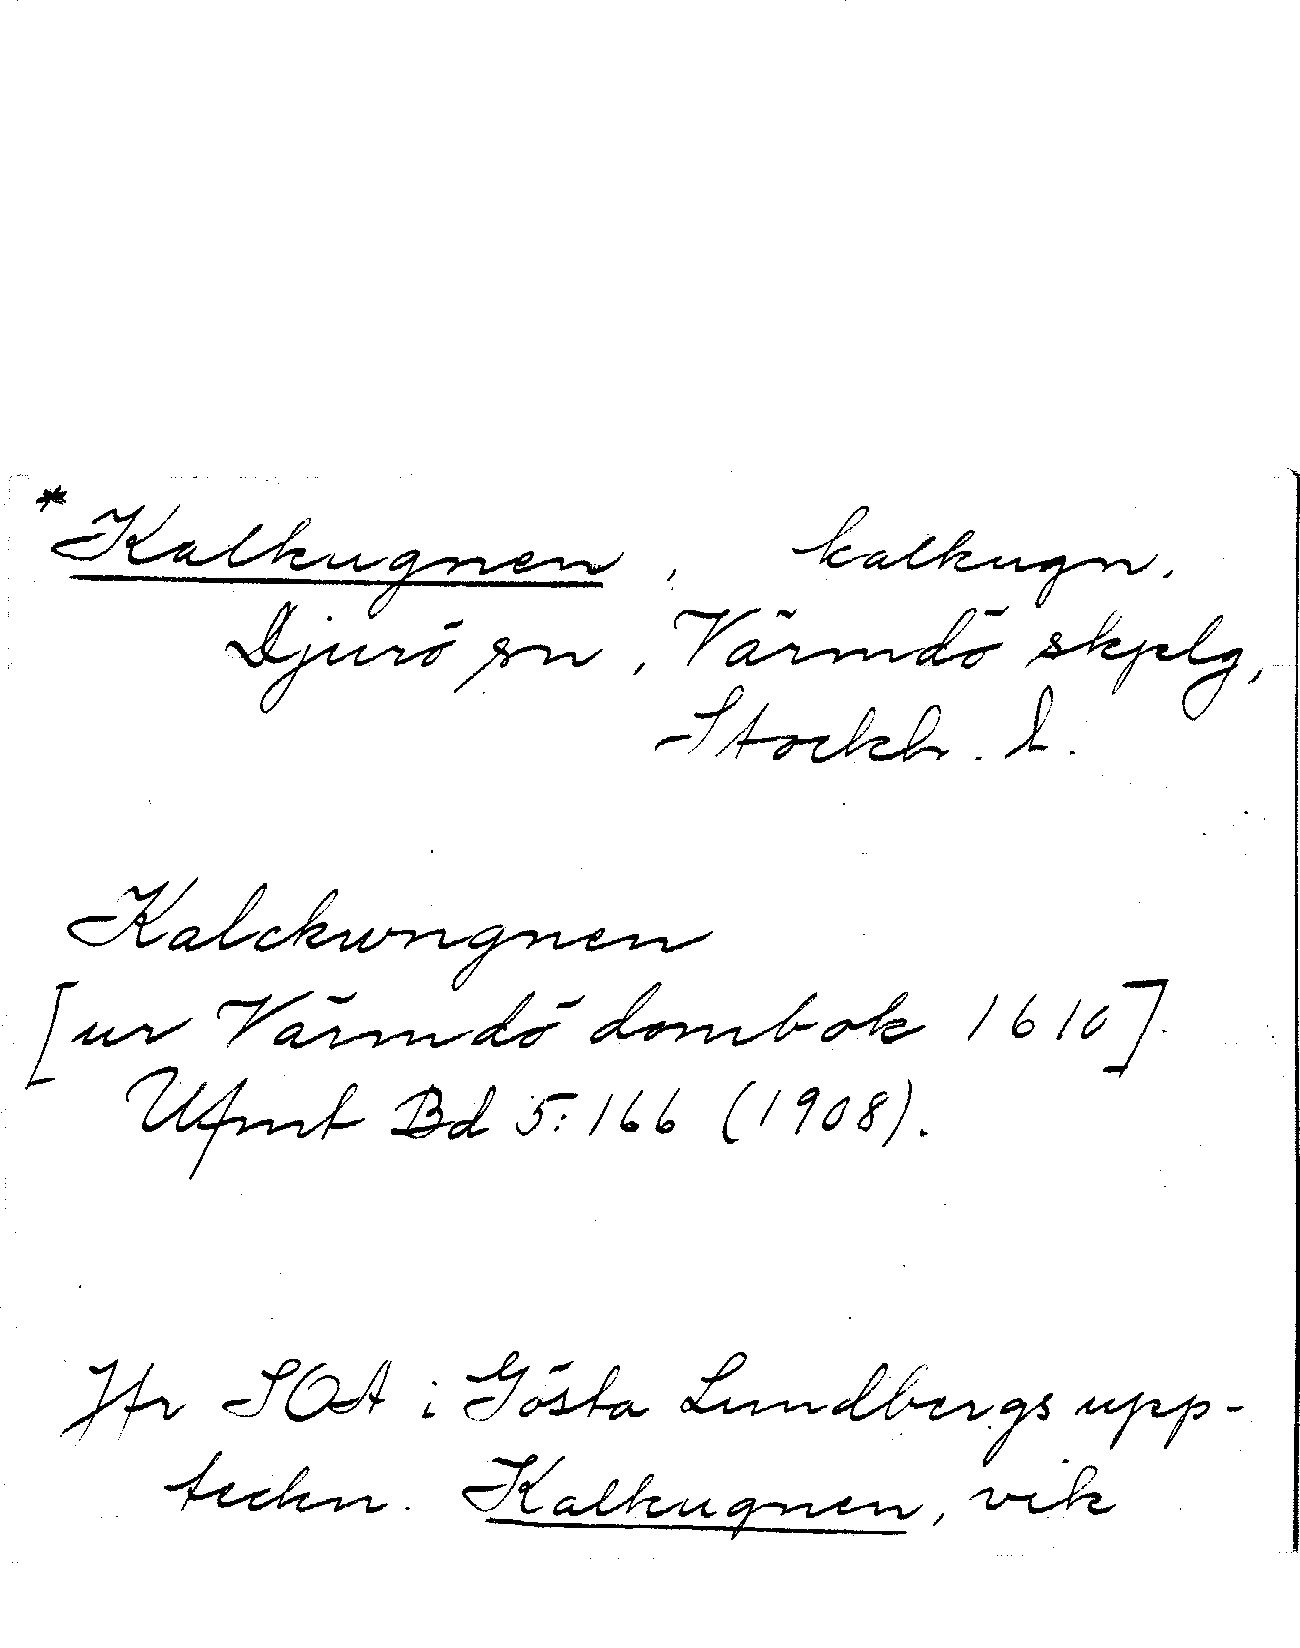 *Kalkugnen, kalkugn.
Djurö sn, Värmdö skplg,
Stockh. l.
Kalckwngnen
[ur Värmdö dombok 1610].
Ufmt Bd 5:166 (1908).
Jfr SOA i Gösta Lundbergs upp-
teckn. Kalkugnen, vik